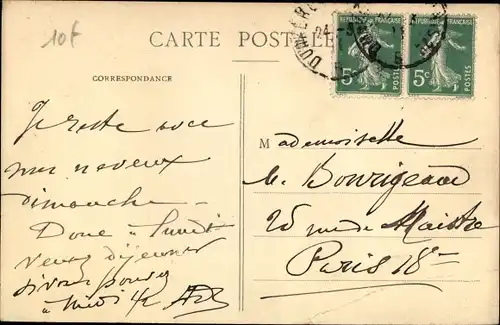 10f
CARTE POSTALE
DUNKERQUE
RÉPUBLIQUE FRANÇAISE
5c POSTES
RÉPUBLIQUE FRANÇAISE
5c POSTES
CORRESPONDANCE
Je reste avec
mes neveux
dimanche
Donc à lundi
venez déjeuner
si vous pouvez
à midi 1/2
Mademoiselle
M. Bourigeaud
25 rue de Maistre
Paris 18e